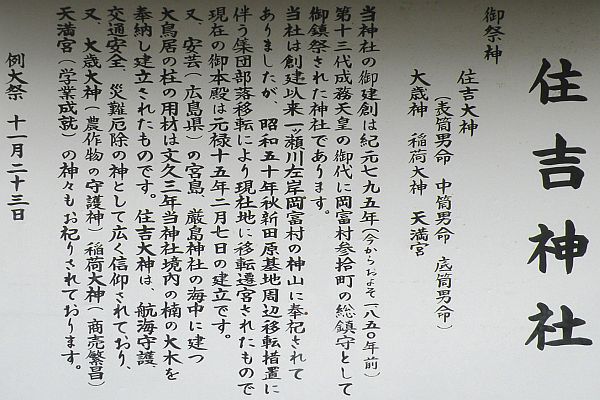 住吉神社
御祭神
住吉大神
(表筒男命 中筒男命 底筒男命)
大歳神 稲荷大神 天満宮
当神社の御建創は紀元七九五年(今からおよそ一八五〇年前)
第十三代成務天皇の御代に岡富村参拾町の総鎮守として
御鎮祭された神社であります。
当社は創建以来一ッ瀬川左岸岡富村の神山に奉祀されて
ありましたが、昭和五十年秋新田原基地周辺移転措置に
伴う集団部落移転により現社地に移転遷宮されたもので
現在の御本殿は元禄十五年二月七日の建立です。
又、安芸(広島県)の宮島、厳島神社の海中に建つ
大鳥居の柱の用材は文久三年当神社境内の楠の大木を
奉納し建立されたものです。住吉大神は、航海守護
交通安全、災難厄除の神として広く信仰されており、
又、大歳大神(農作物の守護神)稲荷大神(商売繁昌)
天満宮(学業成就)の神々もお祀りされております。
例大祭 十一月二十三日